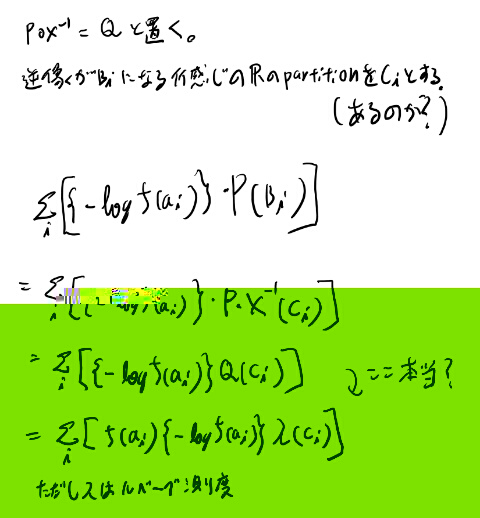 P∘X⁻¹ = Q と置く。
逆像がBᵢになる何感じのRのpartitionをCᵢとする.
(あるのか?)
Σᵢ[{-log f(aᵢ)}・P(Bᵢ)]
= Σᵢ[{-log f(aᵢ)}・P・X⁻¹(Cᵢ)]
= Σᵢ[{-log f(aᵢ)}Q(Cᵢ)] ここ本当?
= Σᵢ[f(aᵢ){-log f(aᵢ)}λ(Cᵢ)]
ただしλはルベーグ測度